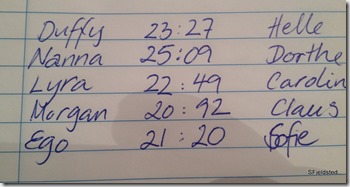 Duffy 23:27 Helle
Nanna 25:09 Dorthe
Lyra 22:49 Carolin
Morgan 20:92 Claus
Ego 21:20 Sofie
SFieldsted